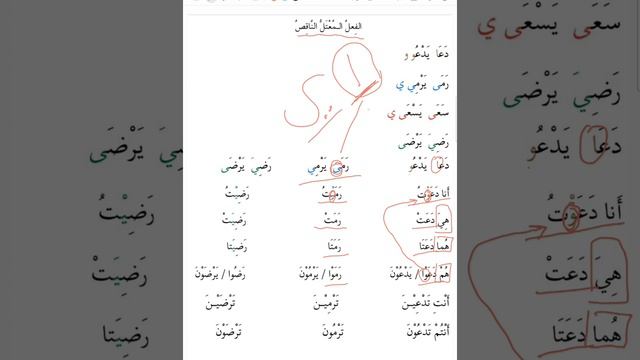 الفِعلُ الـمُعْتَلُّ النَّاقِصُ
دَعَا يَدْعُو و
رَمَى يَرْمِي ي
سَعَى يَسْعَى ي
رَضِيَ يَرْضَى
دَعَا يَدْعُو رَمَى يَرْمِي رَضِيَ يَرْضَى
أَنا دَعَوْتُ رَمَيْتُ رَضِيْتُ
هِيَ دَعَتْ رَمَتْ رَضِيَتْ
هُما دَعَتَا رَمَتَا رَضِيَتَا
هُمْ دَعَوْا / يَدْعُوْنَ رَمَوْا / يَرْمُوْنَ رَضُوا / يَرْضَوْنَ
أَنْتِ تَدْعِيْـنَ تَرْمِيْـنَ تَرْضَيْـنَ
أَنْتُمْ تَدْعُوْنَ تَرْمُونَ تَرْضَوْنَ
سَعَى يَسْعَى ي
رَضِيَ يَرْضَى
دَعَا يَدْعُو
أَنا دَعَوْتُ
هِيَ دَعَتْ
هُما دَعَتَا
يَرْضَى
رَضِيْتُ
رَضِيَتْ
رَضِيَتَا